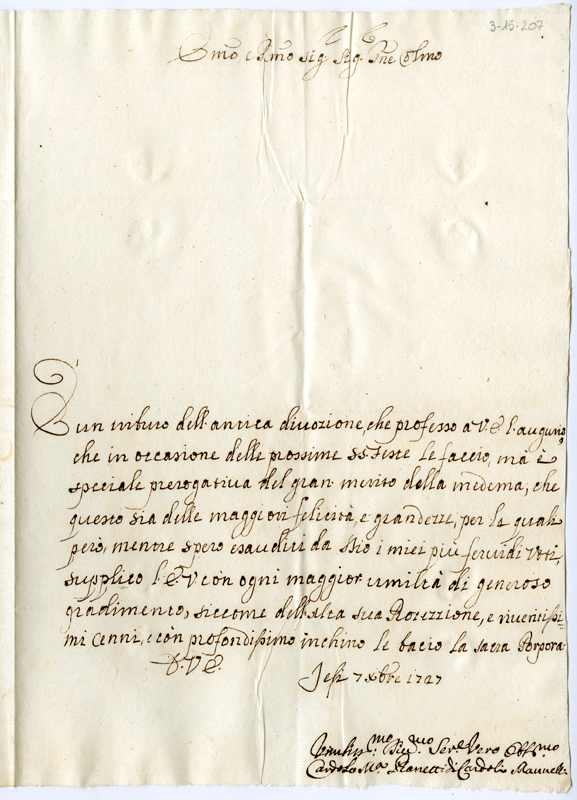 3-15-207
Emo e Rmo Sig.r Sig.r Pne Colmo
È un tributo dell'antica divozione, che professo a V.E. l'augurio,
che in occasione delle prossime SS. Feste le faccio, ma è
speciale prerogativa del gran merito della medema, che
questo sia delle maggiori felicità, e grandezze, per le quali
però, mentre spero esauditi da Dio i miei più fervidi Voti,
supplico l'E.V. con ogni maggior umiltà di generoso
gradimento, siccome dell'alta sua Protezzione, e riveritissi-
mi Cenni, e con profondissimo inchino le bacio la sacra Porpora
D.V.E.
Jesi 7 Xbre 1727
Serv.e Vero Obbl.mo
Cardolo M.a Pianetti